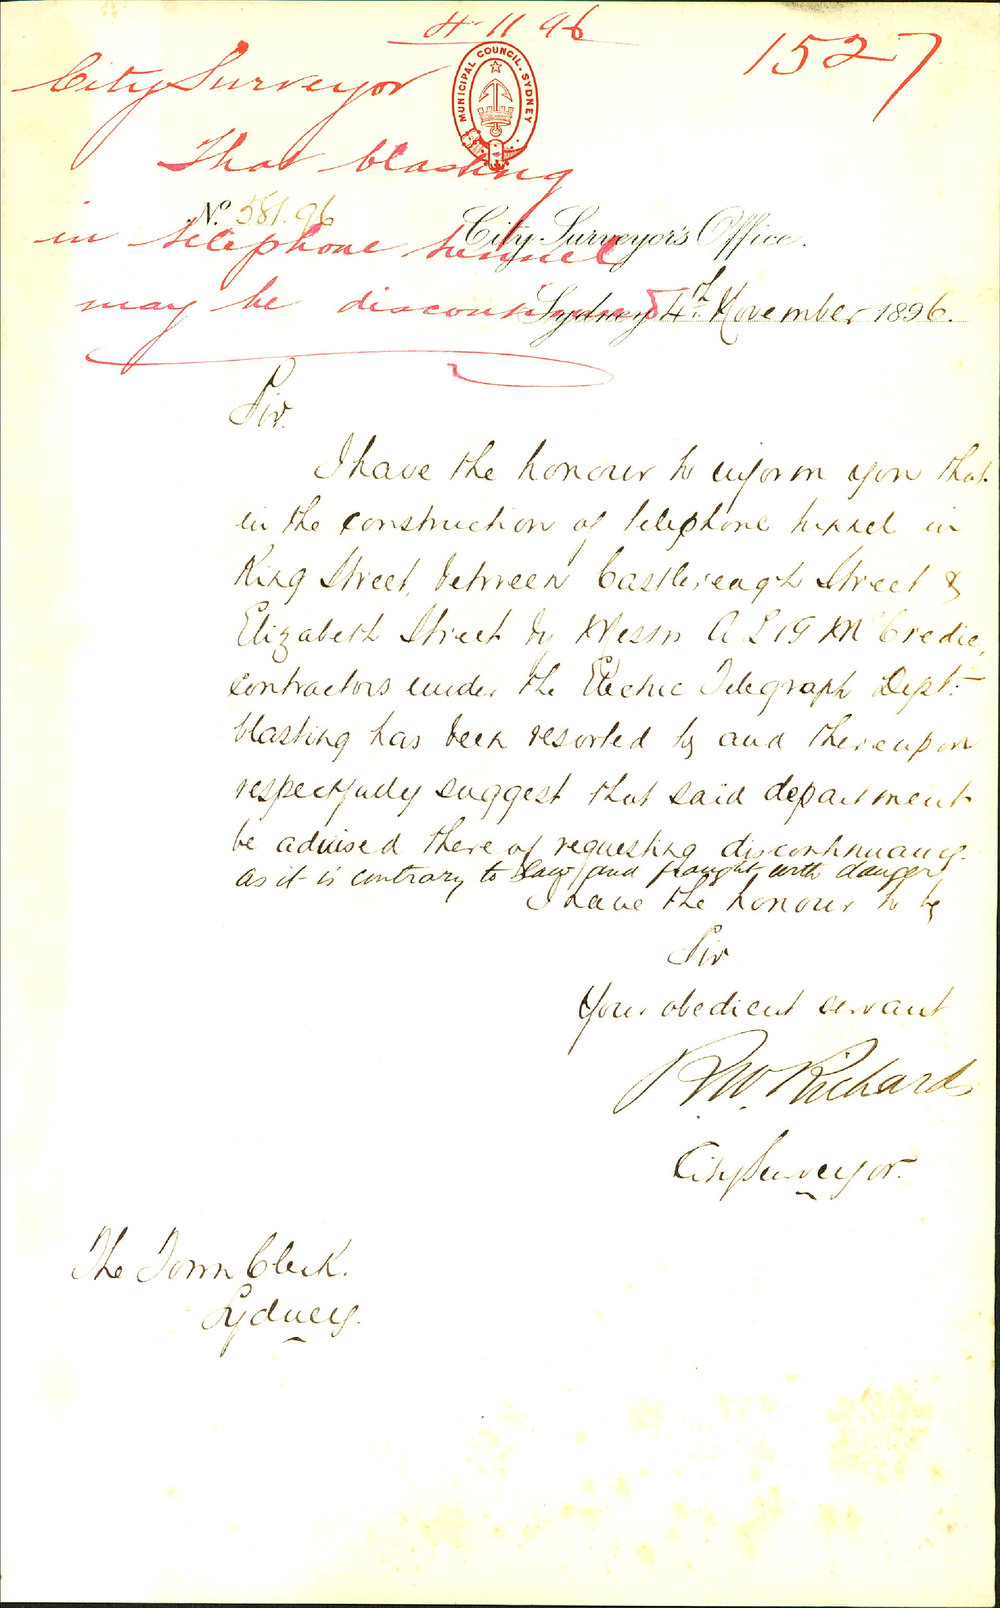 4-11 96
1527
City Surveyor
MUNICIPAL COUNCIL. SYDNEY
That blasting
No. 581.96
City Surveyor's Office.
in telephone tunnel
may be discontinued
Sydney 4th November 1896.
Sir.
I have the honour to inform you that
in the construction of telephone tunnel in
King Street, between Castlereagh Street &
Elizabeth Street by Messrs A L & G McCredie,
contractors under the Electric Telegraph Dept:-
blasting has been resorted to and thereupon
respectfully suggest that said department
be advised thereof requesting discontinuance.
as it is contrary to Law and fraught with danger
I have the honour to be
Sir
Your obedient servant
R.W. Richards
City Surveyor.
The Town Clerk.
Sydney.